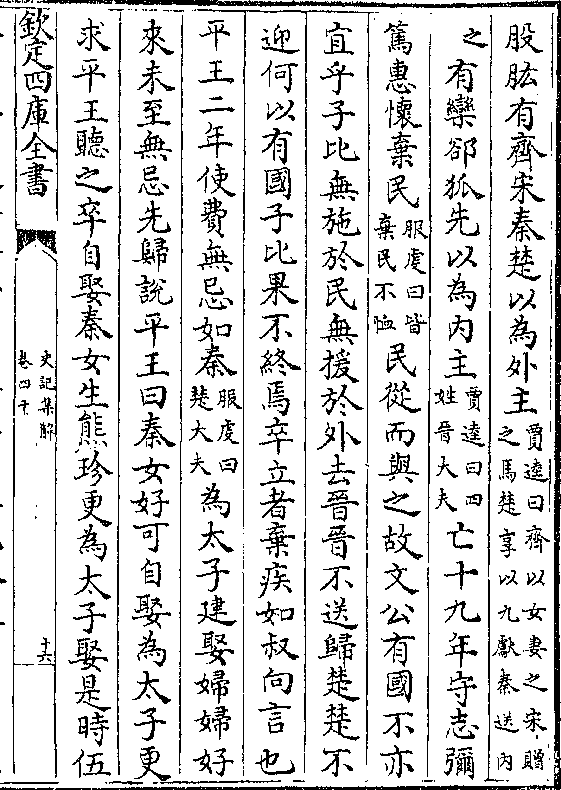 股肱有齊宋秦楚以為外主賈逵曰齊以女妻之宋贈之馬楚享以九獻秦送内
之有欒郤狐先以為内主賈逵曰四姓晉大夫亡十九年守志彌
篤惠懷棄民服䖍曰皆棄民不恤民從而與之故文公有國不亦
宜乎子比無施於民無援於外去晉晉不送歸楚楚不
迎何以有國子比果不終焉卒立者棄疾如叔向言也
平王二年使費無忌如秦服䖍曰楚大夫為太子建娶婦婦好
來未至無忌先歸説平王曰秦女好可自娶為太子更
求平王聽之卒自娶秦女生熊珍更為太子娶是時伍
欽定四庫全書
史記集解
卷四十
十六